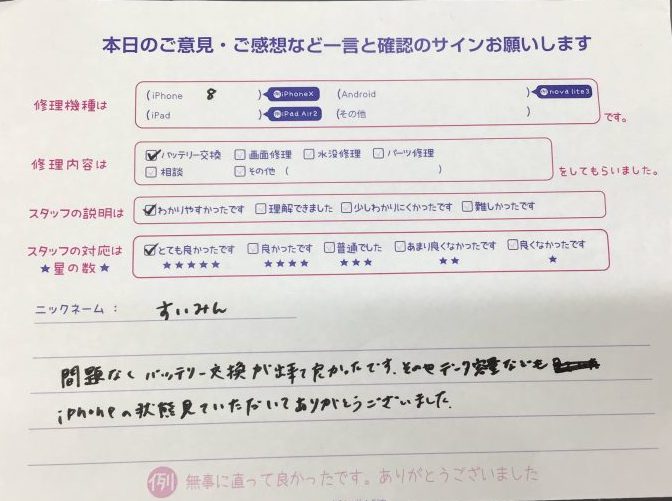 本日のご意見・ご感想など一言と確認のサインお願いします
修理機種は (iPhone 8 ) iPhoneX (Android ) nova lite3
(iPad ) iPad Air2 (その他 ) です。
修理内容は バッテリー交換 画面修理 水没修理 パーツ修理
相談 その他 ( ) をしてもらいました。
スタッフの説明は わかりやすかったです 理解できました 少しわかりにくかったです 難しかったです
スタッフの対応は とても良かったです 良かったです 普通でした あまり良くなかったです 良くなかったです
★星の数★ ★★★★★ ★★★★ ★★★ ★★ ★
ニックネーム: すいみん
問題なくバッテリー交換が出来て良かったです、その他データ容量なども
iPhoneの状態見ていただいてありがとうございました。
例 無事に直って良かったです。ありがとうございました